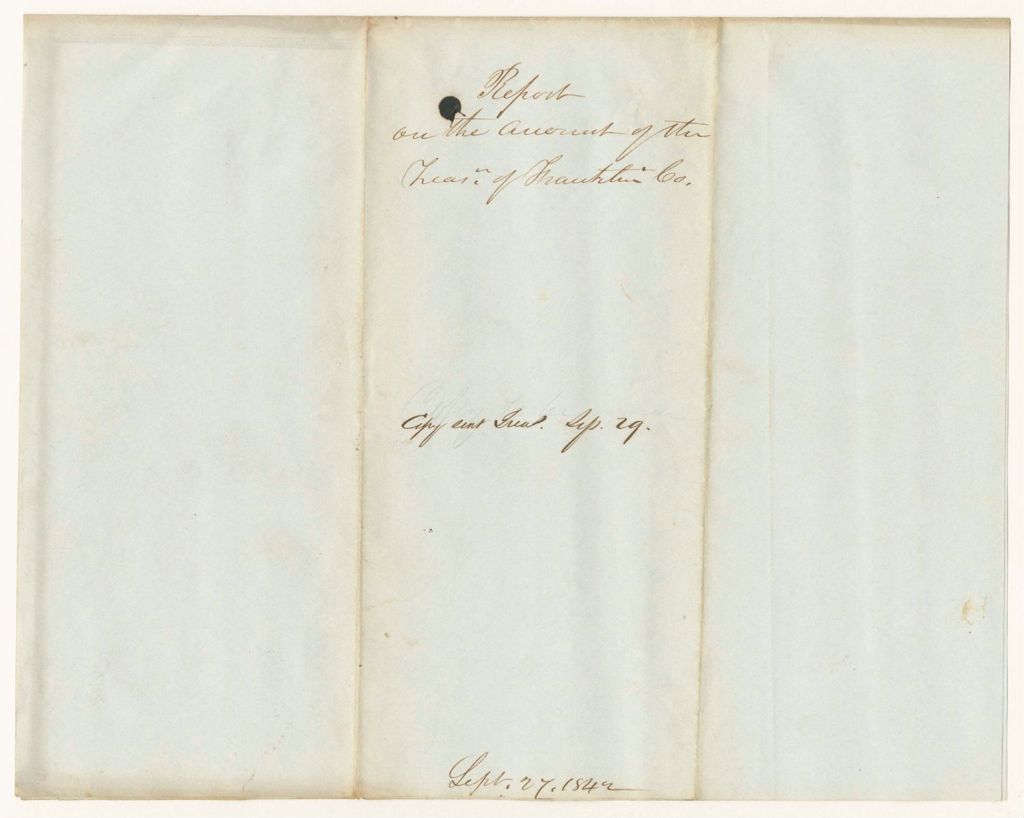 Report
on the account of the
Treasr. of Franklin Co.
Copy sent Treas. Sep. 29.
Sept. 27. 1842